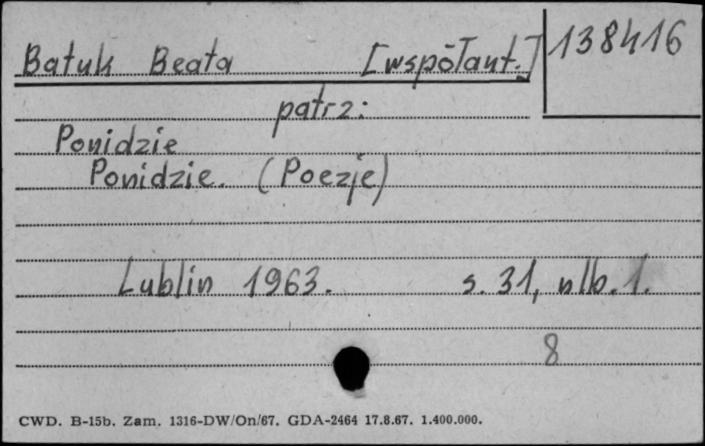 Batuk Beata [współaut.] 138416
patrz:
Ponidzie
Ponidzie. (Poezje)
Lublin 1963. s. 31, nlb. 1.
8
CWD. B-15b. Zam. 1316-DW/On/67. GDA-2464 17.8.67. 1.400.000.